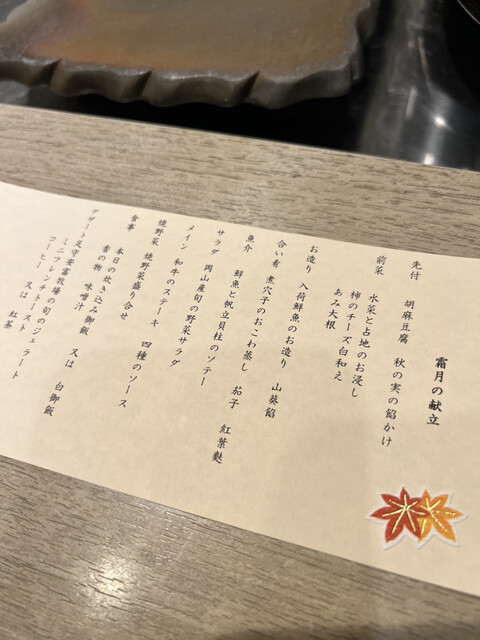 霜月の献立
先付 胡麻豆腐 秋の実の餡かけ
前菜 水菜と占地のお浸し
柿のチーズ白和え
あみ大根
お造り 入荷鮮魚のお造り 山葵餡
合い肴 煮穴子のおこわ蒸し
魚介 鮮魚と帆立貝柱のソテー 茄子 紅葉麩
サラダ 岡山産旬の野菜サラダ
メイン 和牛のステーキ 四種のソース
焼野菜 焼野菜盛り合せ
食事 本日の炊き込み御飯 又は 白御飯
香の物 味噌汁
デザート 足守安富牧場の旬のジェラート
ミニフレンチトースト
コーヒー 又は 紅茶